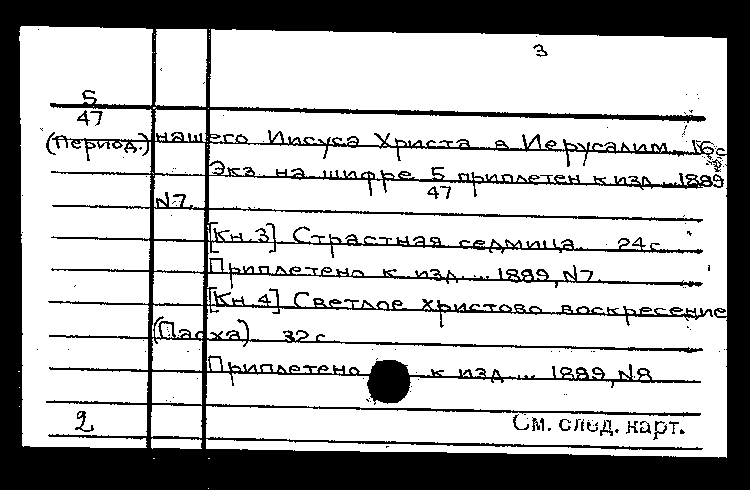 3
Б
47
(Период.) нашего Иисуса Христа в Иерусалим. 16с
Экз на шифре Б приплетен к изд ... 1889
47
N7.
[Кн.3] Страстная седмица. 24с.
Приплетено к изд ... 1889, N7.
[Кн.4] Светлое христово воскресение
(Пасха) 32с
Приплетено к изд ... 1889, N8
2
См. след. карт.